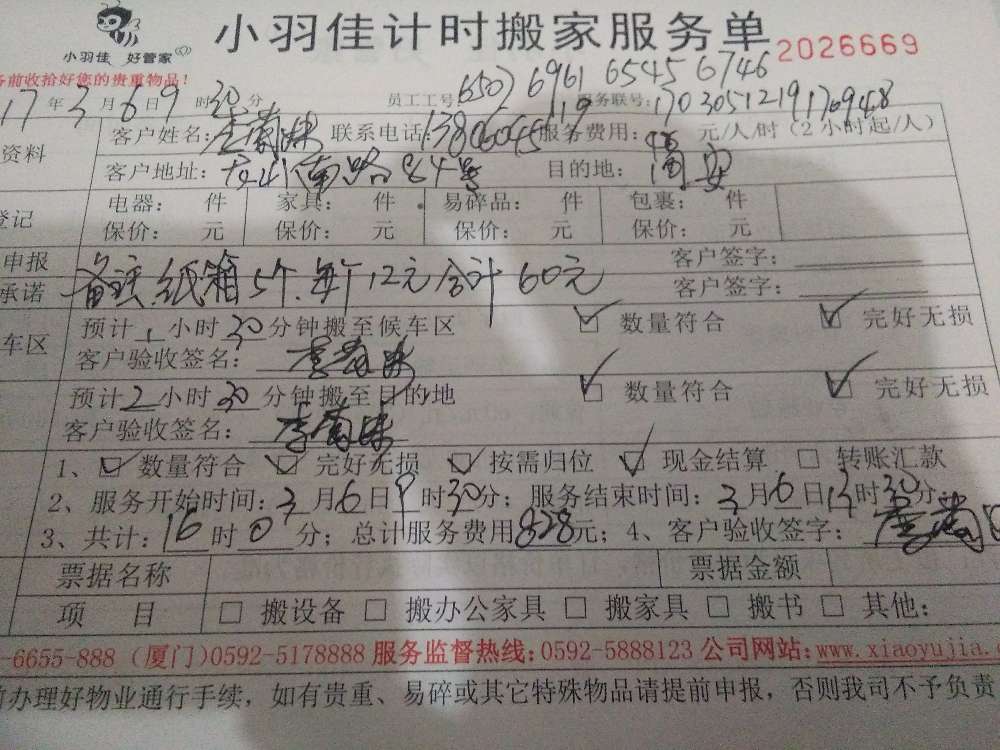 小羽佳计时搬家服务单 2026669
小羽佳 好管家
务前收拾好您的贵重物品!
17年3月6日9时30分 员工工号 6507 6961 6545 6746 服务联号:
资料 客户姓名: 联系电话:13806045119 服务费用: 元/人/时(2小时起/人)
客户地址: 南路84号 目的地: 同安
登记 电器: 件 家具: 件 易碎品: 件 包裹: 件
保价: 元 保价: 元 保价: 元 保价: 元
申报 客户签字:
承诺 备注:纸箱5个.每个12元合计60元 客户签字:
车区 预计1小时30分钟搬至候车区 ☑ 数量符合 ☑ 完好无损
客户验收签名:
预计2小时30分钟搬至目的地 ☑ 数量符合 ☑ 完好无损
客户验收签名:
1、☑ 数量符合 ☑ 完好无损 ☑ 按需归位 ☑ 现金结算 □ 转账汇款
2、服务开始时间:3月6日9时30分;服务结束时间:3月6日13时30分
3、共计:16时0分;总计服务费用828元;4、客户验收签字:
票据名称 票据金额
项 目 □ 搬设备 □ 搬办公家具 □ 搬家具 □ 搬书 □ 其他:
-6655-888(厦门)0592-5178888 服务监督热线:0592-5888123 公司网站:www.xiaoyujia.c
前办理好物业通行手续,如有贵重、易碎或其它特殊物品请提前申报,否则我司不予负责